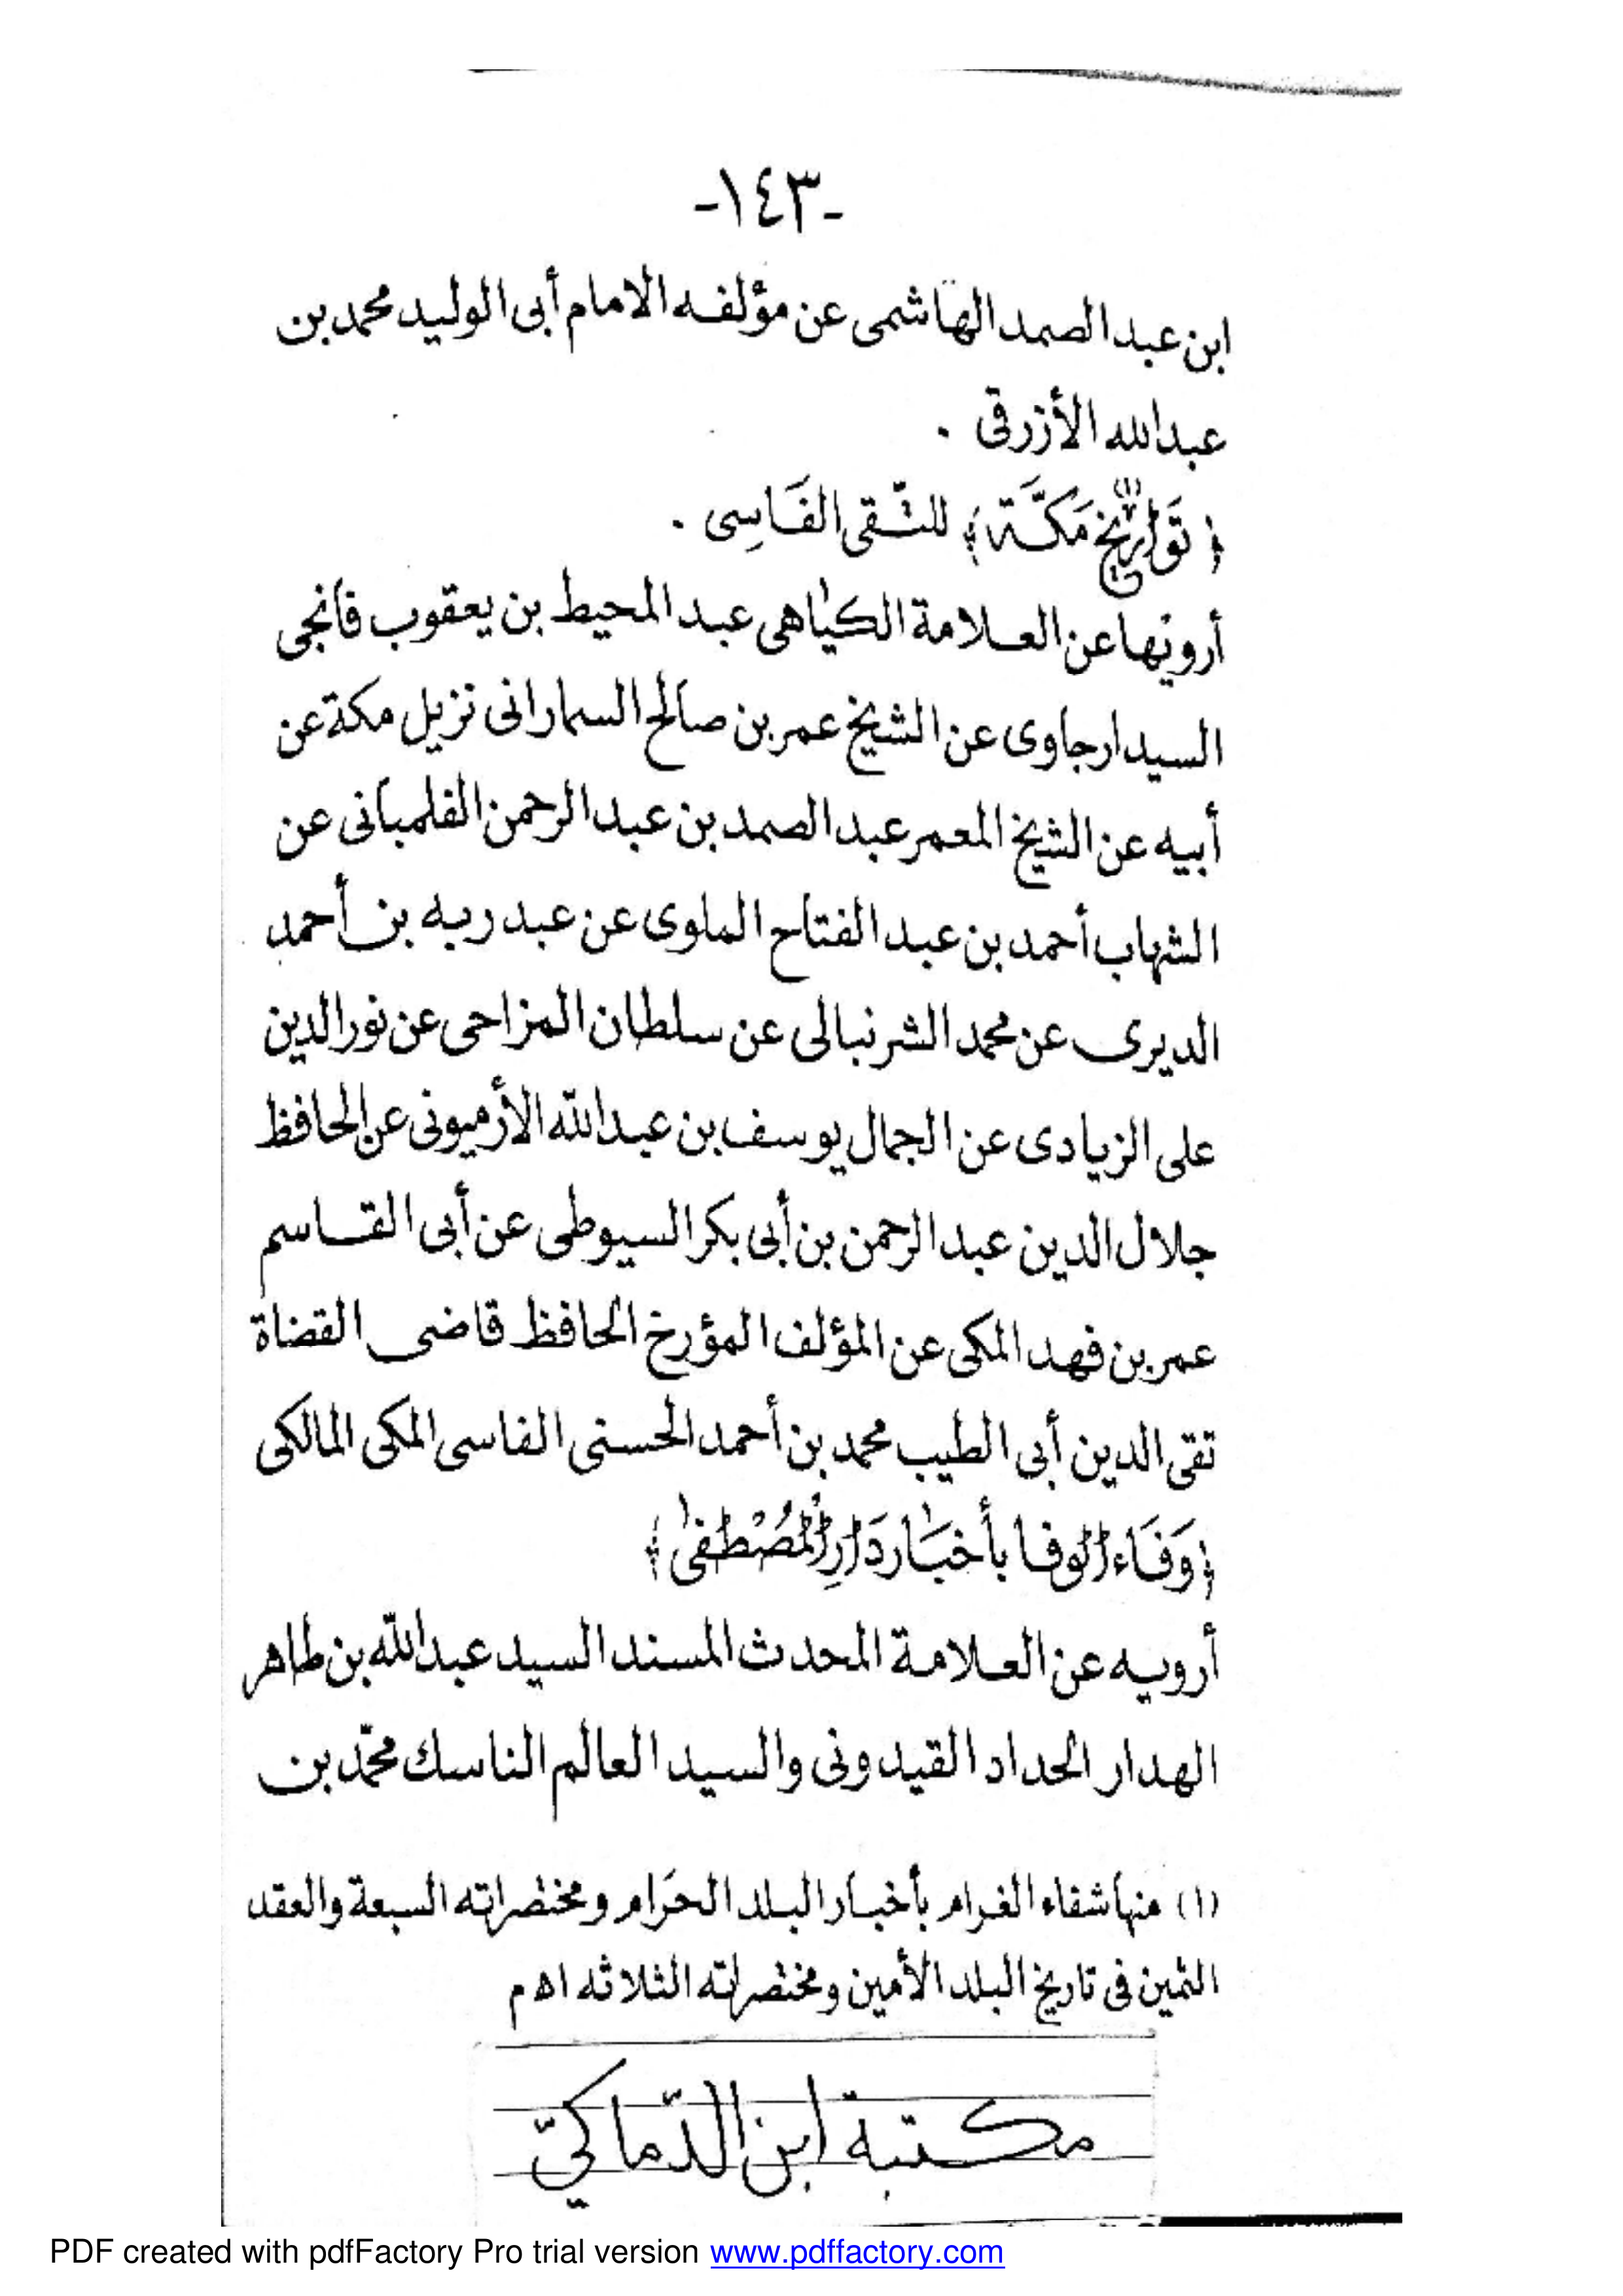 -١٤٣-
ابن عبد الصمد الهاشمى عن مؤلفه الامام أبى الوليد محمد بن
عبدالله الأزرقى .
﴿ تَوَارِيخ مَكَّة ﴾ (١) للتّقى الفَاسِى .
أرويها عن العلامة الكياهى عبد المحيط بن يعقوب فانجى
السيدارجاوى عن الشيخ عمر بن صالح السمارانى نزيل مكة عن
أبيه عن الشيخ المعمر عبد الصمد بن عبد الرحمن الفلمبانى عن
الشهاب أحمد بن عبد الفتاح الملوى عن عبد ربه بن أحمد
الديرى عن محمد الشرنبالى عن سلطان المزاحى عن نور الدين
على الزيادى عن الجمال يوسف بن عبدالله الأرميونى عن الحافظ
جلال الدين عبد الرحمن بن أبى بكر السيوطى عن أبى القاسم
عمر بن فهد المكى عن المؤلف المؤرخ الحافظ قاضى القضاة
تقى الدين أبى الطيب محمد بن أحمد الحسنى الفاسى المكى المالكى
﴿وَفَاء الوفا بأخبَار دَارِ المُصْطَفى﴾
أرويه عن العلامة المحدث المسند السيد عبدالله بن طاهر
الهدار الحداد القيدونى والسيد العالم الناسك محمّد بن
(١) منها شفاء الغرام بأخبار البلد الحرَام ومختصراته السبعة والعقد
الثمين فى تاريخ البلد الأمين ومختصراته الثلاثه اهم
مكتبة ابن الدّماكيّ
PDF created with pdfFactory Pro trial version www.pdffactory.com